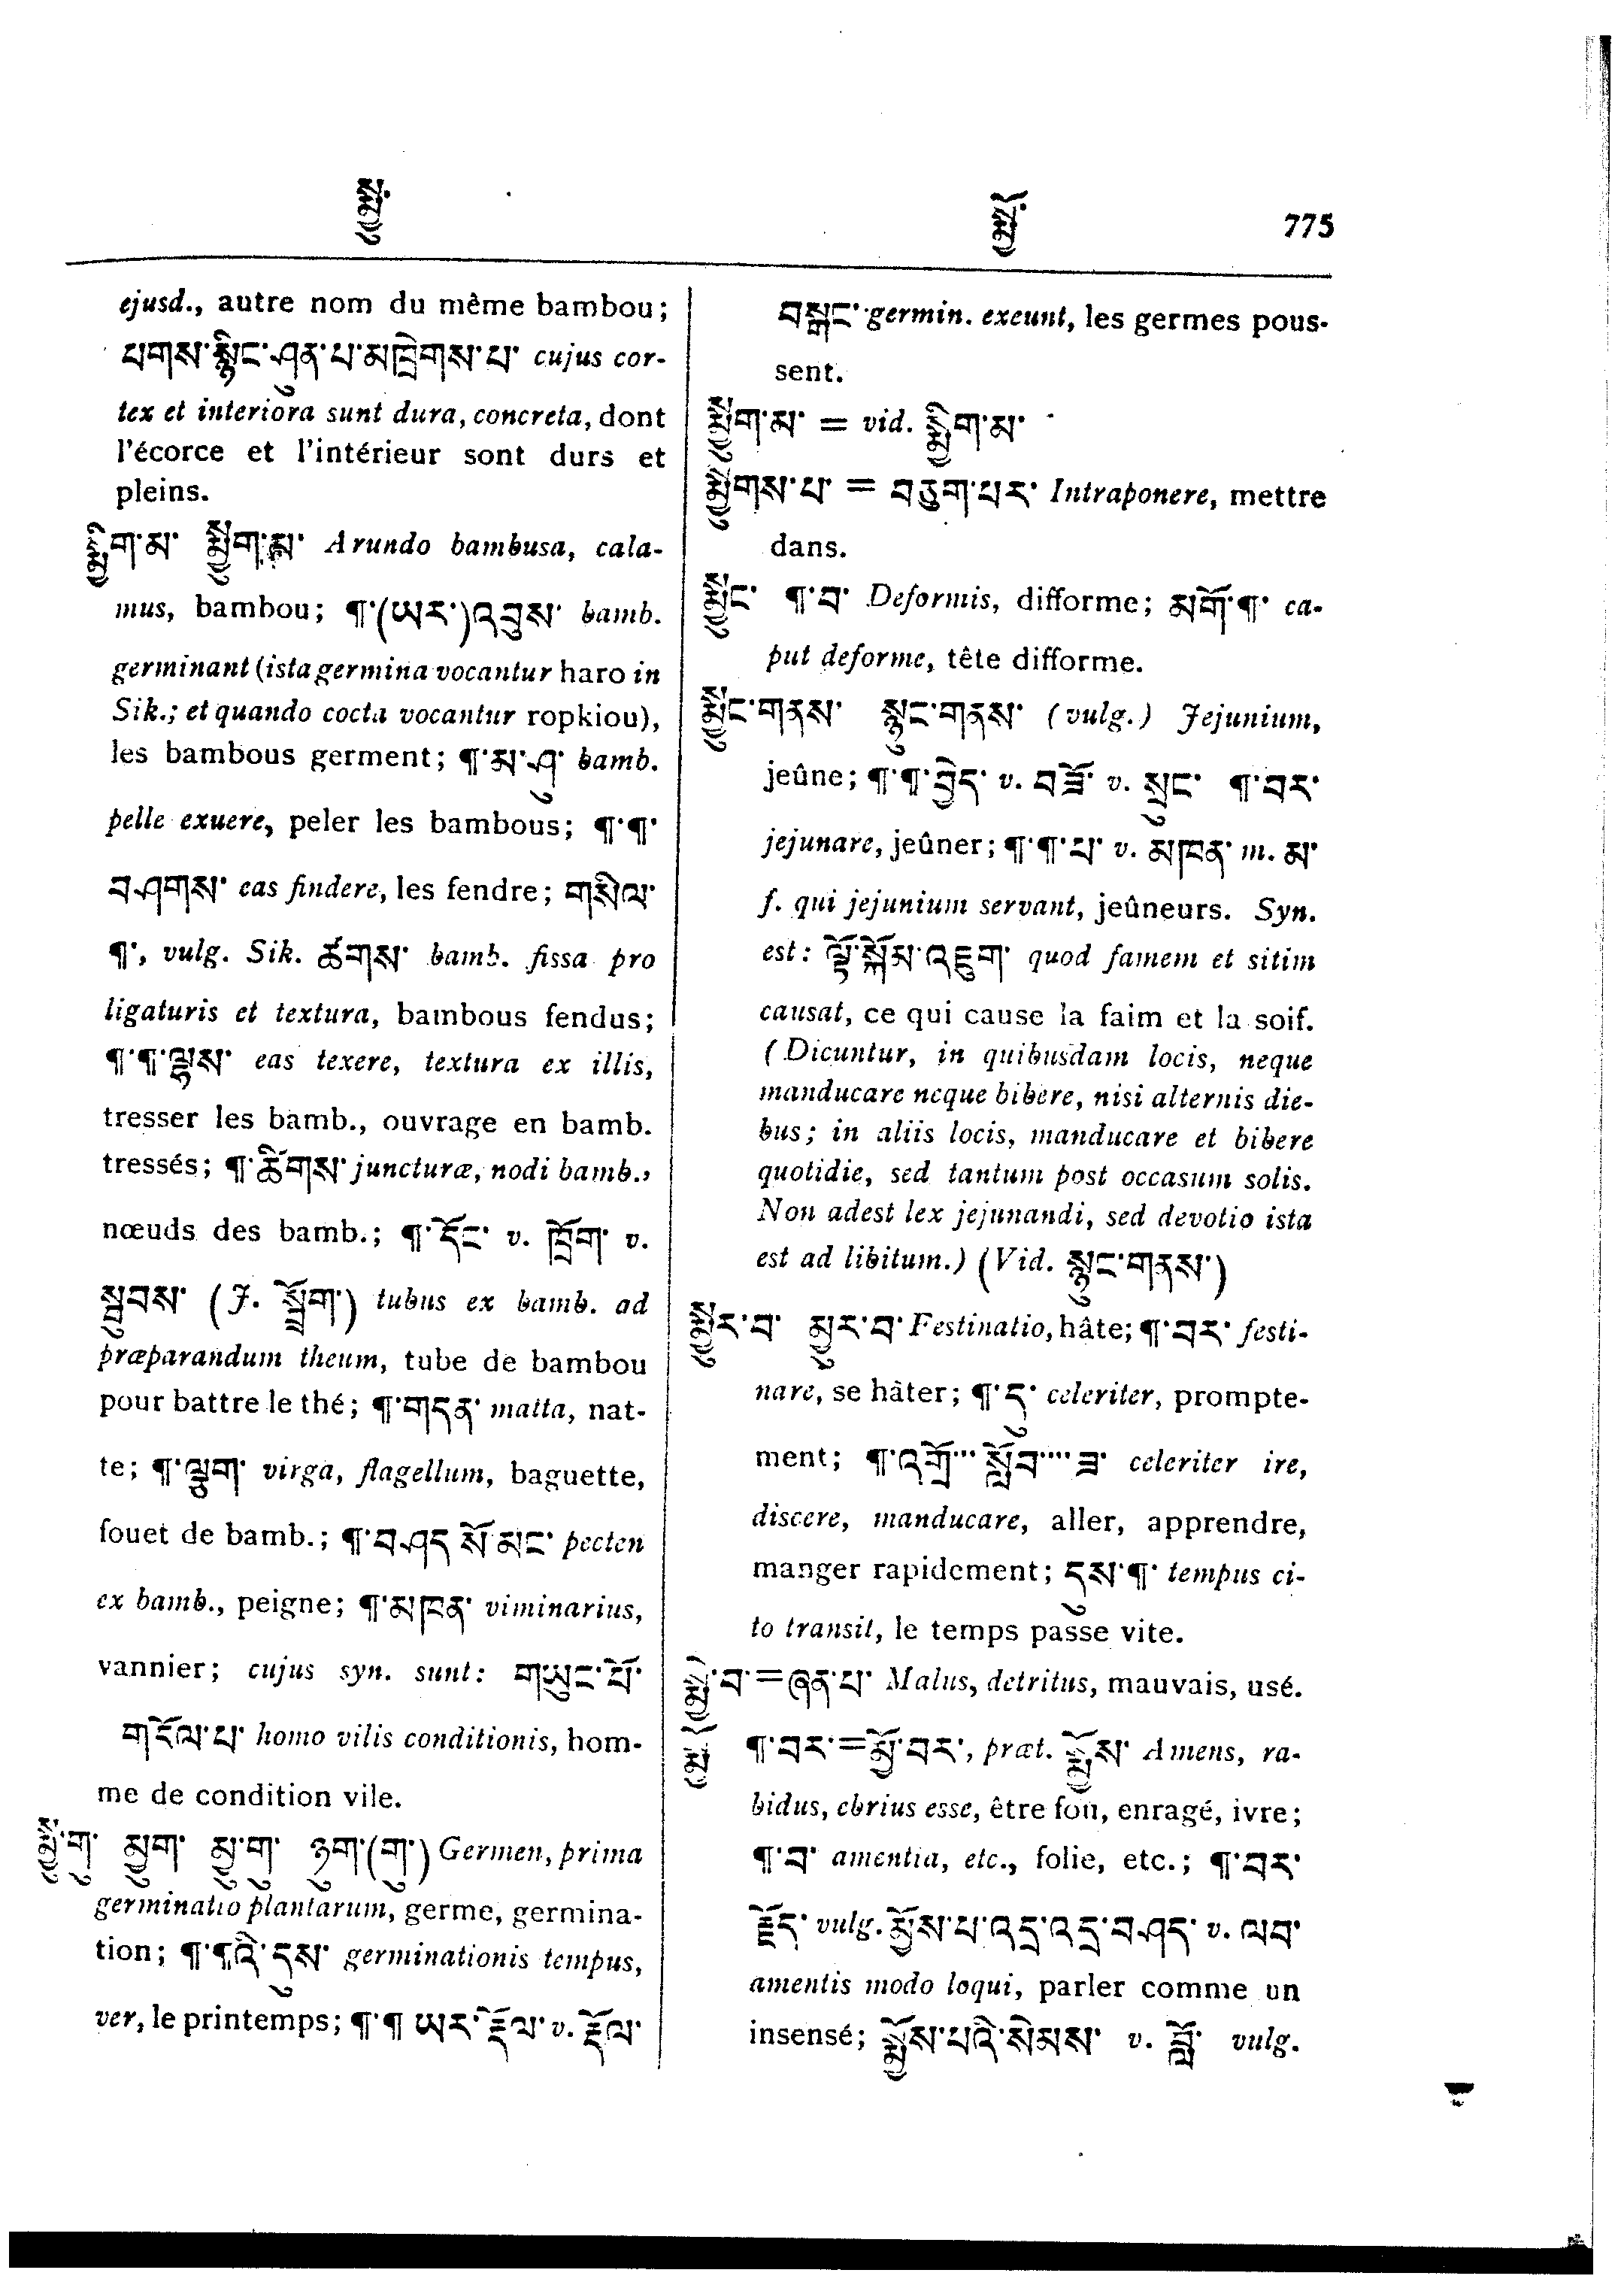 སྨྱུ་
སྨྱོ་
775
ejusd., autre nom du même bambou;
པགས་སྙིང་ཤུན་པ་མཁྲེགས་པ་ cujus cor-
tex et interiora sunt dura, concreta, dont
l'écorce et l'intérieur sont durs et
pleins.
སྨྱིག་མ་ སྨྱུག་མ་ Arundo bambusa, cala-
mus, bambou; ¶་(ཡར་)འབུས་ bamb.
germinant (ista germina vocantur haro in
Sik.; et quando cocta vocantur ropkiou),
les bambous germent; ¶་མ་ཤུ་ bamb.
pelle exuere, peler les bambous; ¶་¶་
བཤགས་ eas findere, les fendre; གསིལ་
¶་, vulg. Sik. ཚགས་ bamb. fissa pro
ligaturis et textura, bambous fendus;
¶་¶་ལྷས་ eas texere, textura ex illis,
tresser les bamb., ouvrage en bamb.
tressés; ¶་ཚིགས་ juncturæ, nodi bamb.,
nœuds des bamb.; ¶་དོང་ v. ཁྲོག་ v.
སྦུབས་ (J. སྤྲོག་) tubus ex bamb. ad
præparandum theum, tube de bambou
pour battre le thé; ¶་གདན་ matta, nat-
te; ¶་ལྕུག་ virga, flagellum, baguette,
fouet de bamb.; ¶་བཤད སོ་མང་ pecten
ex bamb., peigne; ¶་མཁན་ viminarius,
vannier; cujus syn. sunt: གཡུང་པོ་
གདོལ་པ་ homo vilis conditionis, hom-
me de condition vile.
སྨྱུ་གུ་ མྱུག་ མྱུ་གུ་ ཉུག་(གུ་) Germen, prima
germinatio plantarum, germe, germina-
tion; ¶་¶འི་དུས་ germinationis tempus,
ver, le printemps; ¶་¶ ཡར་རྡོལ་ v. རྡོལ་
བསྐང་ germin. exeunt, les germes pous-
sent.
སྨྱུག་མ་ = vid. སྨྱིག་མ་
སྨྱུགས་པ་ = བཅུག་པར་ Intraponere, mettre
dans.
སྨྱུང་ ¶་བ་ Deformis, difforme; མགོ་¶་ ca-
put deforme, tête difforme.
སྨྱུང་གནས་ སྙུང་གནས་ (vulg.) Jejunium,
jeûne; ¶་¶་བྱེད་ v. བཟོ་ v. སྲུང་ ¶་བར་
jejunare, jeûner; ¶་¶་པ་ v. མཁན་ m. མ་
f. qui jejunium servant, jeûneurs. Syn.
est: ལྟོ་སྐོམ་འཇུག་ quod famem et sitim
causat, ce qui cause la faim et la soif.
(Dicuntur, in quibusdam locis, neque
manducare neque bibere, nisi alternis die-
bus; in aliis locis, manducare et bibere
quotidie, sed tantum post occasum solis.
Non adest lex jejunandi, sed devotio ista
est ad libitum.) (Vid. སྙུང་གནས་)
སྨྱུར་བ་ མྱུར་བ་ Festinatio, hâte; ¶་བར་ festi-
nare, se hâter; ¶་དུ་ celeriter, prompte-
ment; ¶་འགྲོ་··· སློབ་···· ཟ་ celeriter ire,
discere, manducare, aller, apprendre,
manger rapidement; དུས་¶་ tempus ci-
to transit, le temps passe vite.
སྨྱེ་བ་=ཞན་པ་ Malus, detritus, mauvais, usé.
སྨྱོ ¶་བར་=མྱོ་བར་, præt. སྨྱོས་ Amens, ra-
bidus, ebrius esse, être fou, enragé, ivre;
¶་བ་ amentia, etc., folie, etc.; ¶་བར་
རྗོད་ vulg. མྱོས་པ་འདྲ་འདྲ་བཤད་ v. ལབ་
amentis modo loqui, parler comme un
insensé; སྨྱོས་པའི་སེམས་ v. བློ་ vulg.